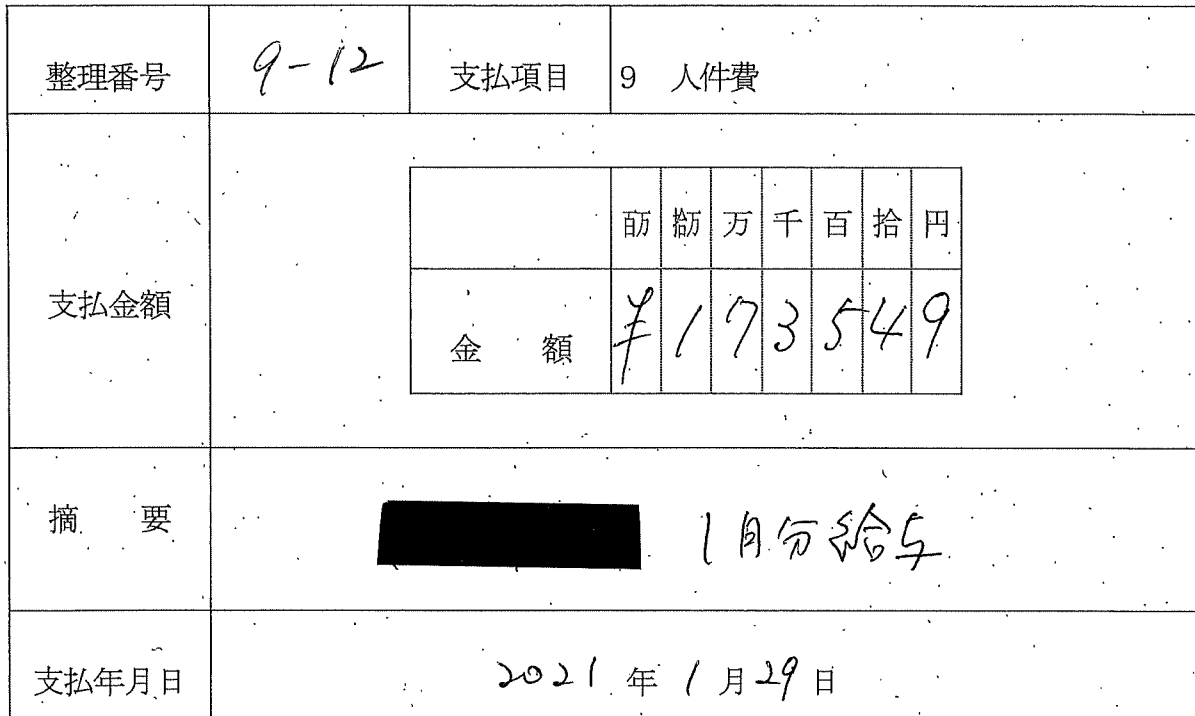 整理番号 9-12 支払項目 9 人件費
百万 拾万 万 千 百 拾 円
支払金額 金 額 ¥173549
摘 要 1月分給与
支払年月日 2021年1月29日